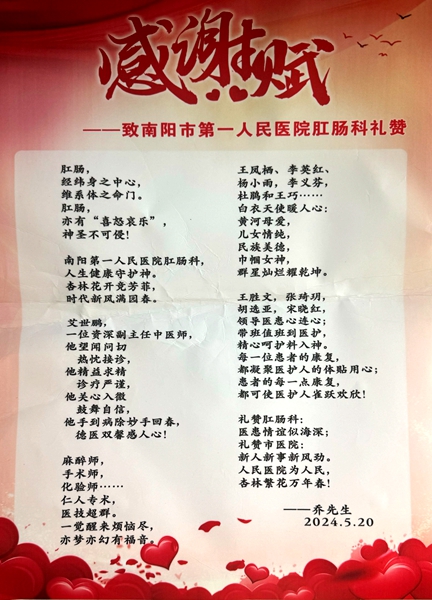 感谢赋
——致南阳市第一人民医院肛肠科礼赞
肛肠，
经纬身之中心，
维系体之命门。
肛肠，
亦有“喜怒哀乐”，
神圣不可侵！
南阳第一人民医院肛肠科，
人生健康守护神。
杏林花开竞芳菲，
时代新风满园春。
艾世鹏，
一位资深副主任中医师，
他望闻问切
热忱接诊，
他精益求精
诊疗严谨，
他关心入微
鼓舞自信，
他手到病除妙手回春，
德医双馨感人心！
麻醉师，
手术师，
化验师……
仁人专术，
医技超群。
一觉醒来烦恼尽，
亦梦亦幻有福音。
王凤栖、李英红、
杨小雨，李义芬，
杜鹃和王巧……
白衣天使暖人心：
黄河母爱，
儿女情纯，
民族美德，
巾帼女神，
群星灿烂耀乾坤。
王胜文，张琦玥，
胡选亚，宋晓红，
领导医患心连心；
带班值班到医护，
精心呵护料入神。
每一位患者的康复，
都凝聚医护人的体贴用心；
患者的每一点康复，
都可使医护人雀跃欢欣！
礼赞肛肠科：
医患情谊似海深；
礼赞市医院：
新人新事新风劲。
人民医院为人民，
杏林繁花万年春！
——乔先生
2024.5.20